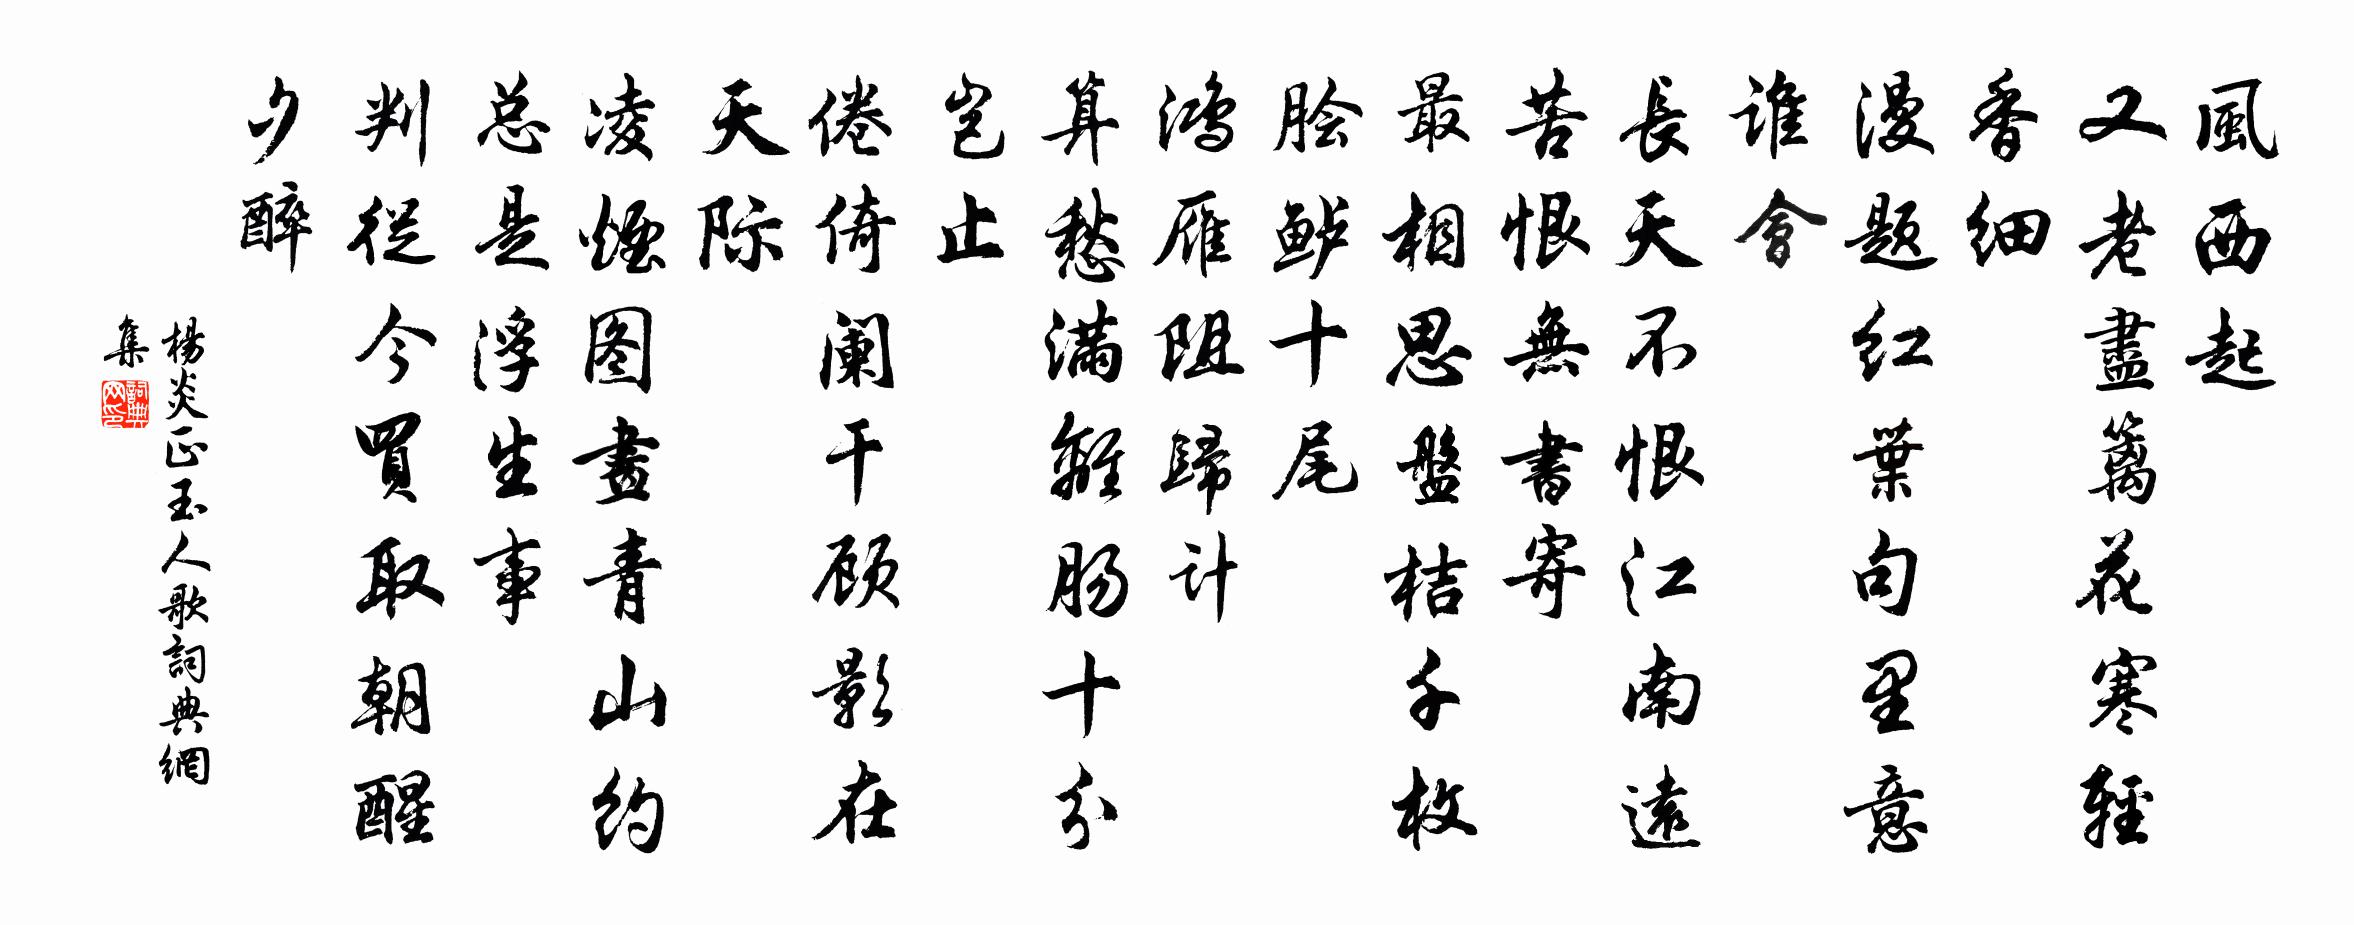 風西起
又老盡篱花寒輕
香细
漫题红葉句里意
誰會
長天不恨江南遠
苦恨無書寄
最相思盤桔千枚
脍鲈十尾
鴻雁阻歸计
算愁满離肠十分
岂止
倦倚阑干顾影在
天际
凌煙图畫青山约
总是浮生事
判從今買取朝醒
夕醉
楊炎正玉人歌詞典網
集
詞典
网印